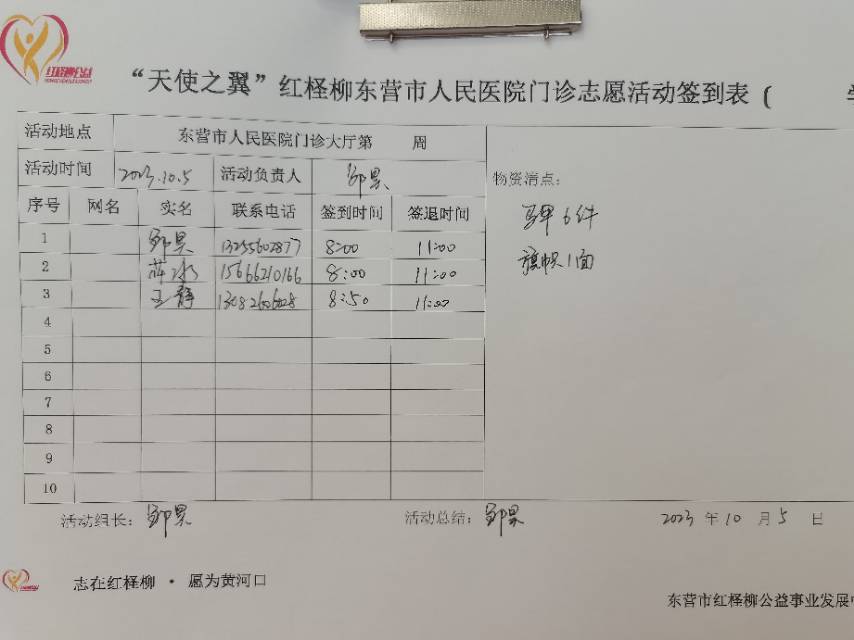 红柽柳公益
“天使之翼”红柽柳东营市人民医院门诊志愿活动签到表（
活动地点 东营市人民医院门诊大厅第 周
活动时间 2023.10.5 活动负责人 邹昊
物资清点：
序号 网名 实名 联系电话 签到时间 签退时间
马甲6件
1 邹昊 13255602877 8:00 11:00
旗帜1面
2 15666210166 8:00 11:00
3 王静 8:50 11:00
4
5
6
7
8
9
10
活动组长：邹昊 活动总结：邹昊 2023 年 10 月 5 日
志在红柽柳 · 愿为黄河口
东营市红柽柳公益事业发展